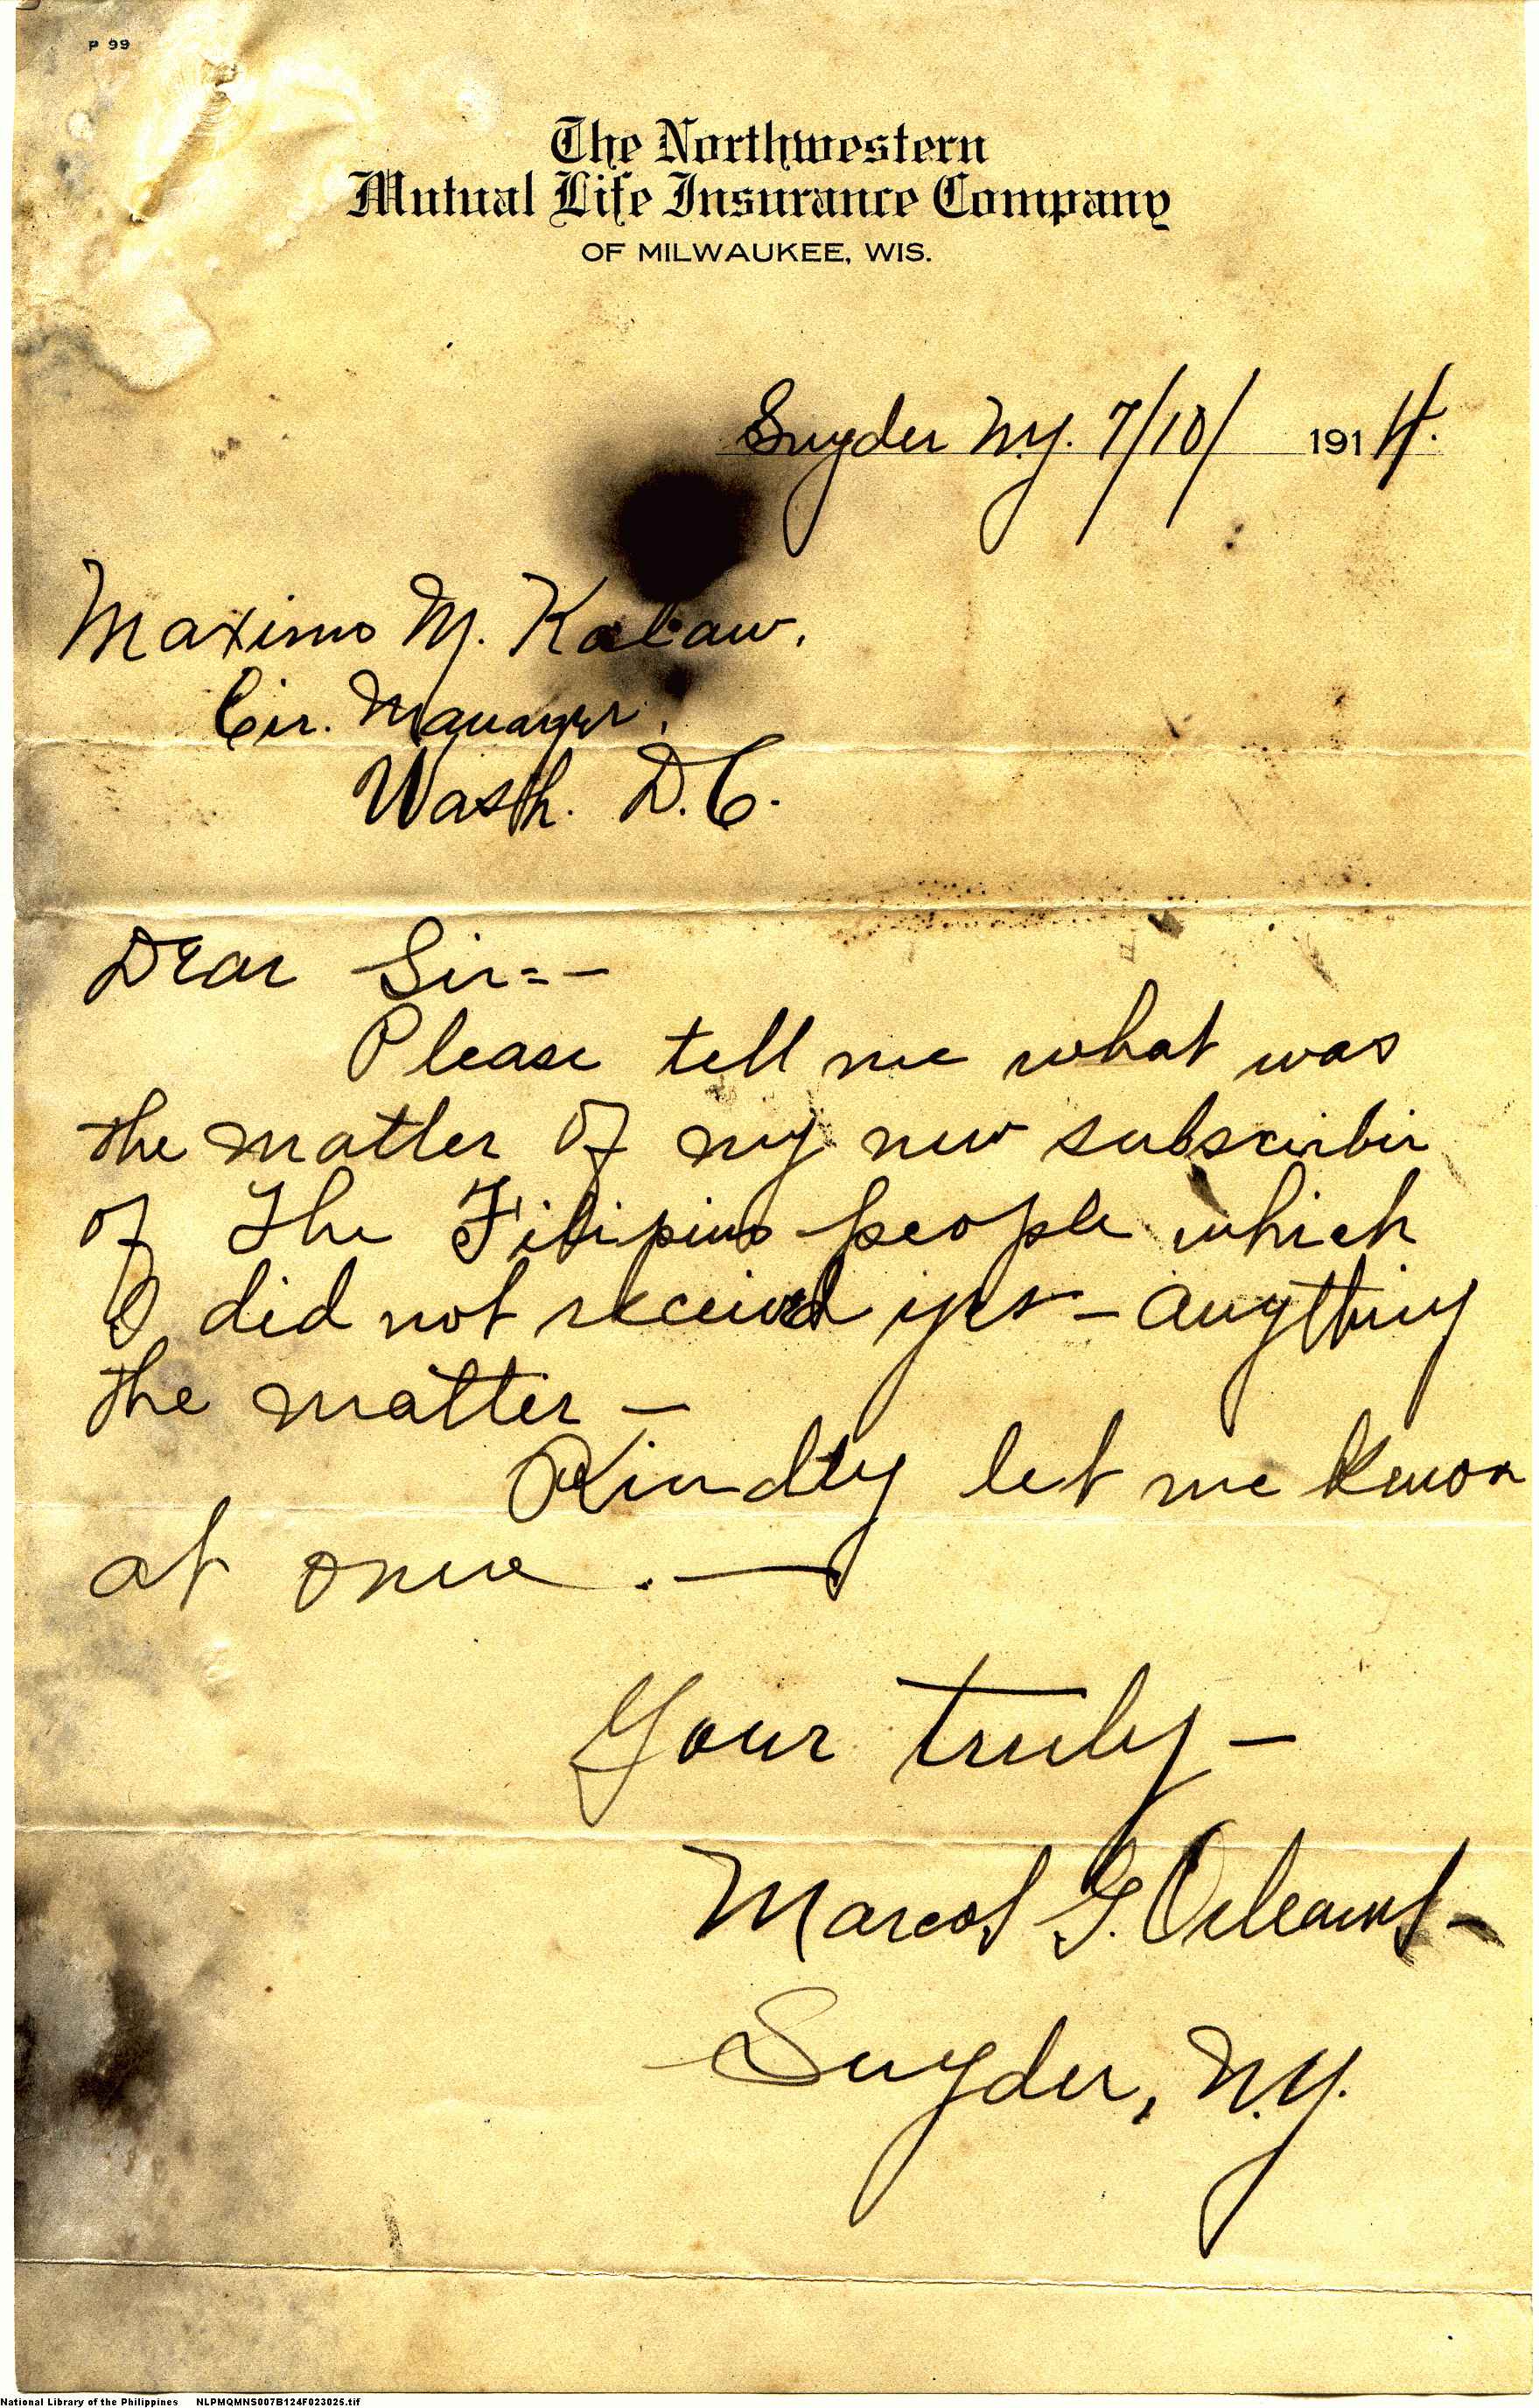 P 99
The Northwestern
Mutual Life Insurance Company
OF MILWAUKEE, WIS.
Snyder N.Y. 7/10/ 1914.
Maximo M. Kalaw.
Cir. Manager,
Wash. D.C.
Dear Sir=-
Please tell me what was
the matter of my new subscirbir
of The Filipino people which
I did not received yes - anything
the matter -
Kindly let me know
at once. -
Your truly -
Marcos G. Orleans -
Snyder, N.Y.
National Library of the Philippines NLPMQMNS007B124F023025.tif